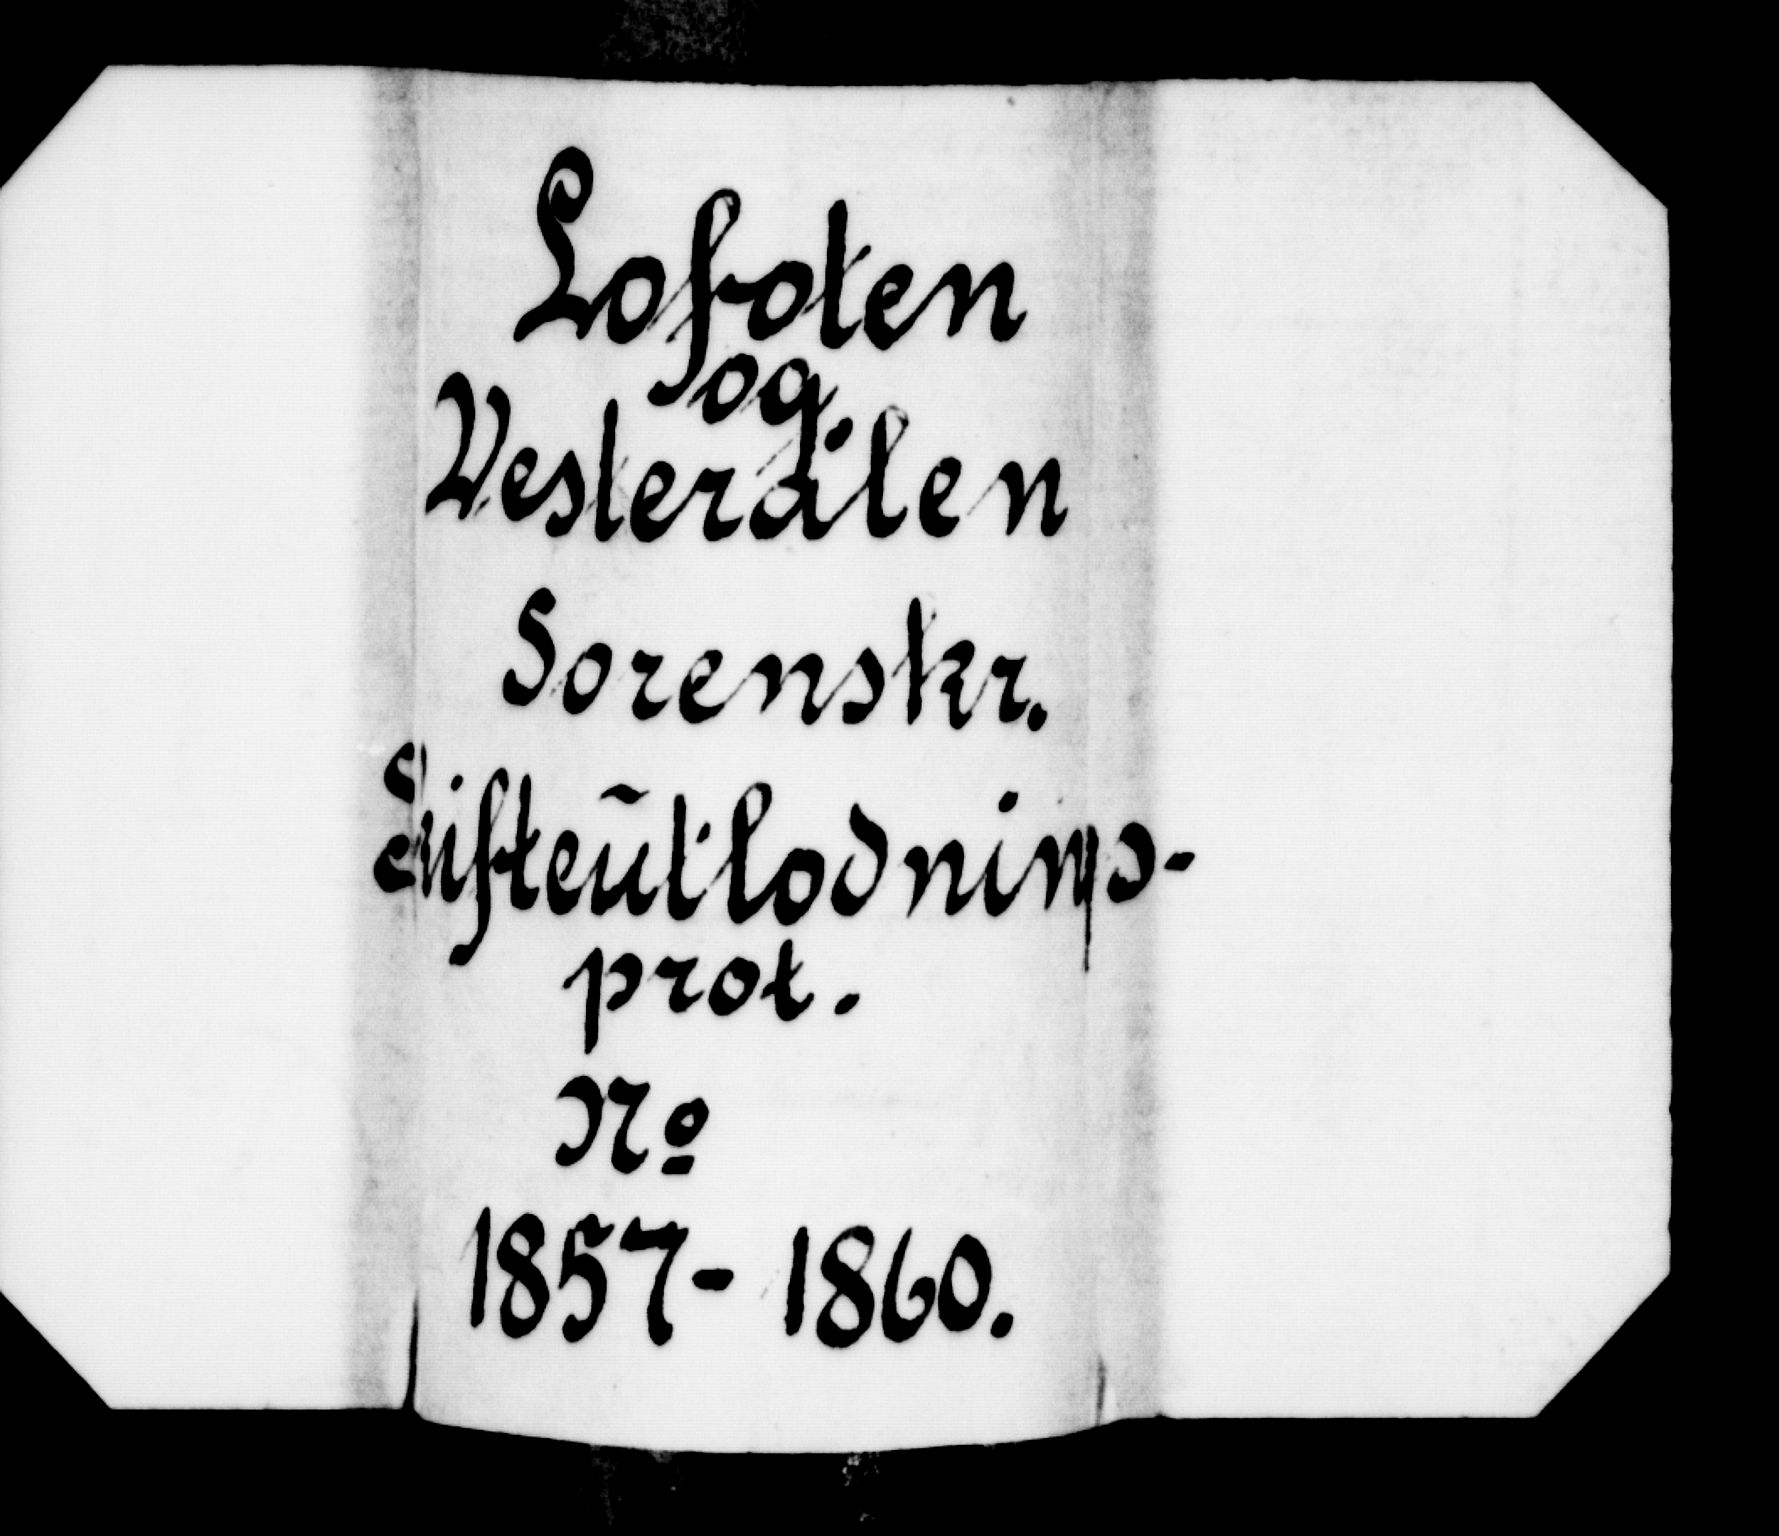 Lofoten
og
Vesterålen
Sorenskr.
Skifteutlodnings-
prot.
No
1857-1860.